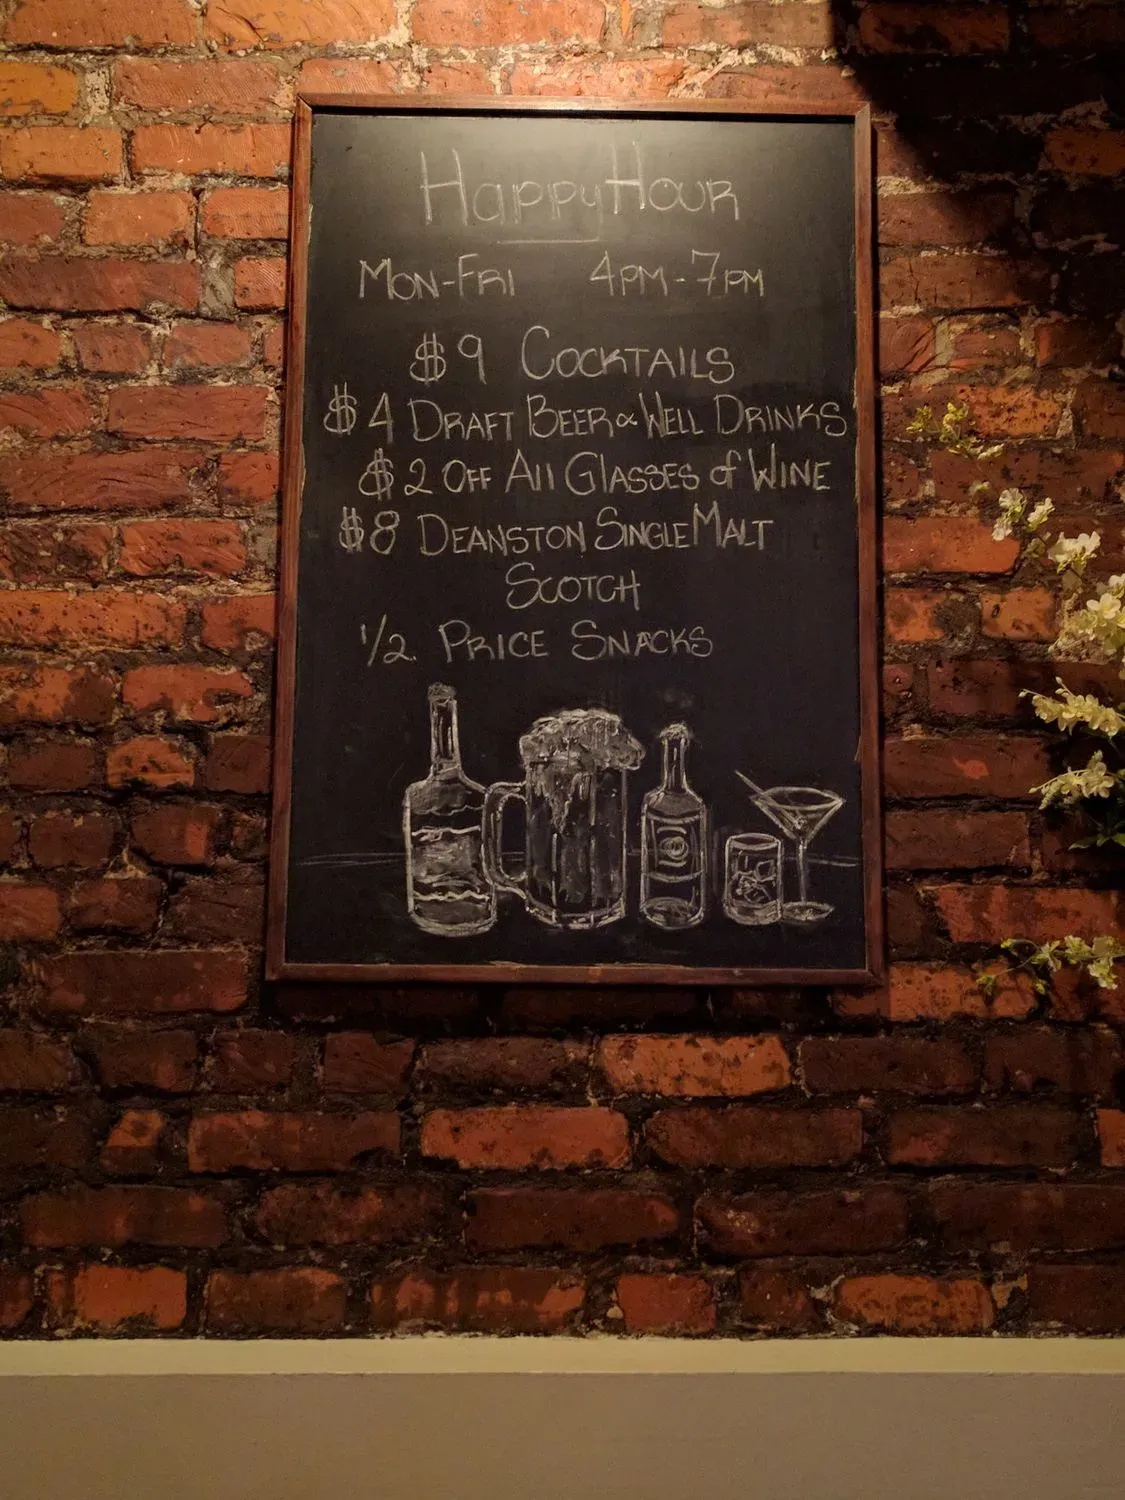 HappyHour
Mon-Fri 4pm-7pm
$9 Cocktails
$4 Draft Beer & Well Drinks
$2 Off All Glasses of Wine
$8 Deanston Single Malt
Scotch
1/2 Price Snacks